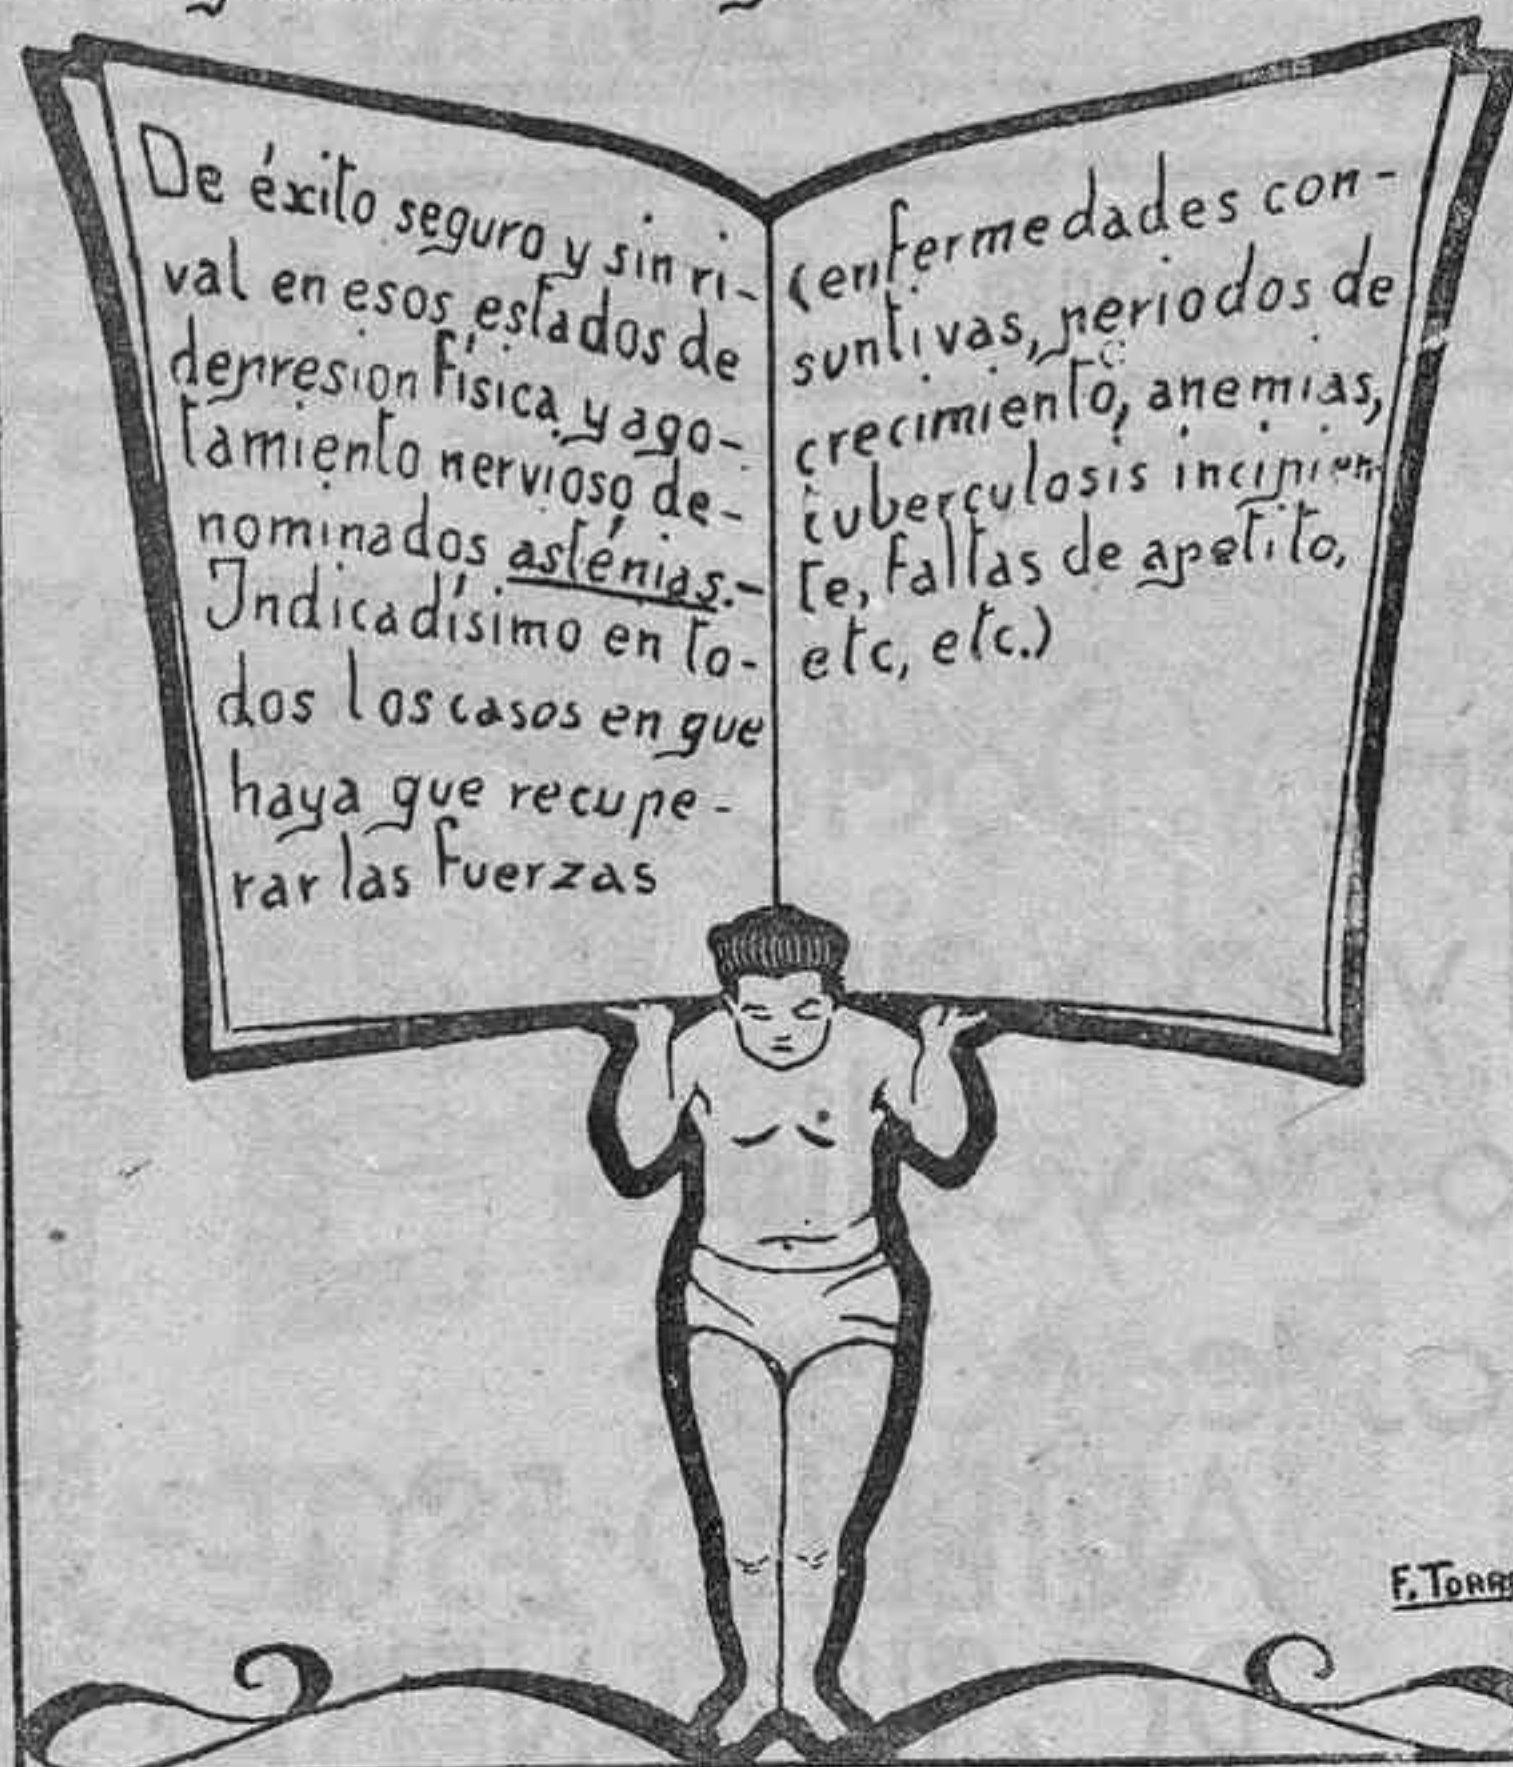 De éxito seguro y sin ri-
val en esos estados de
depresion física y ago-
tamiento nervioso de-
nominados asténias.-
Indicadísimo en to-
dos los casos en que
haya que recupe-
rar las fuerzas
(enfermedades con-
suntivas, periodos de
crecimiento, anemias,
tuberculosis incipien-
te, faltas de apetito,
etc, etc.)
F. TORR